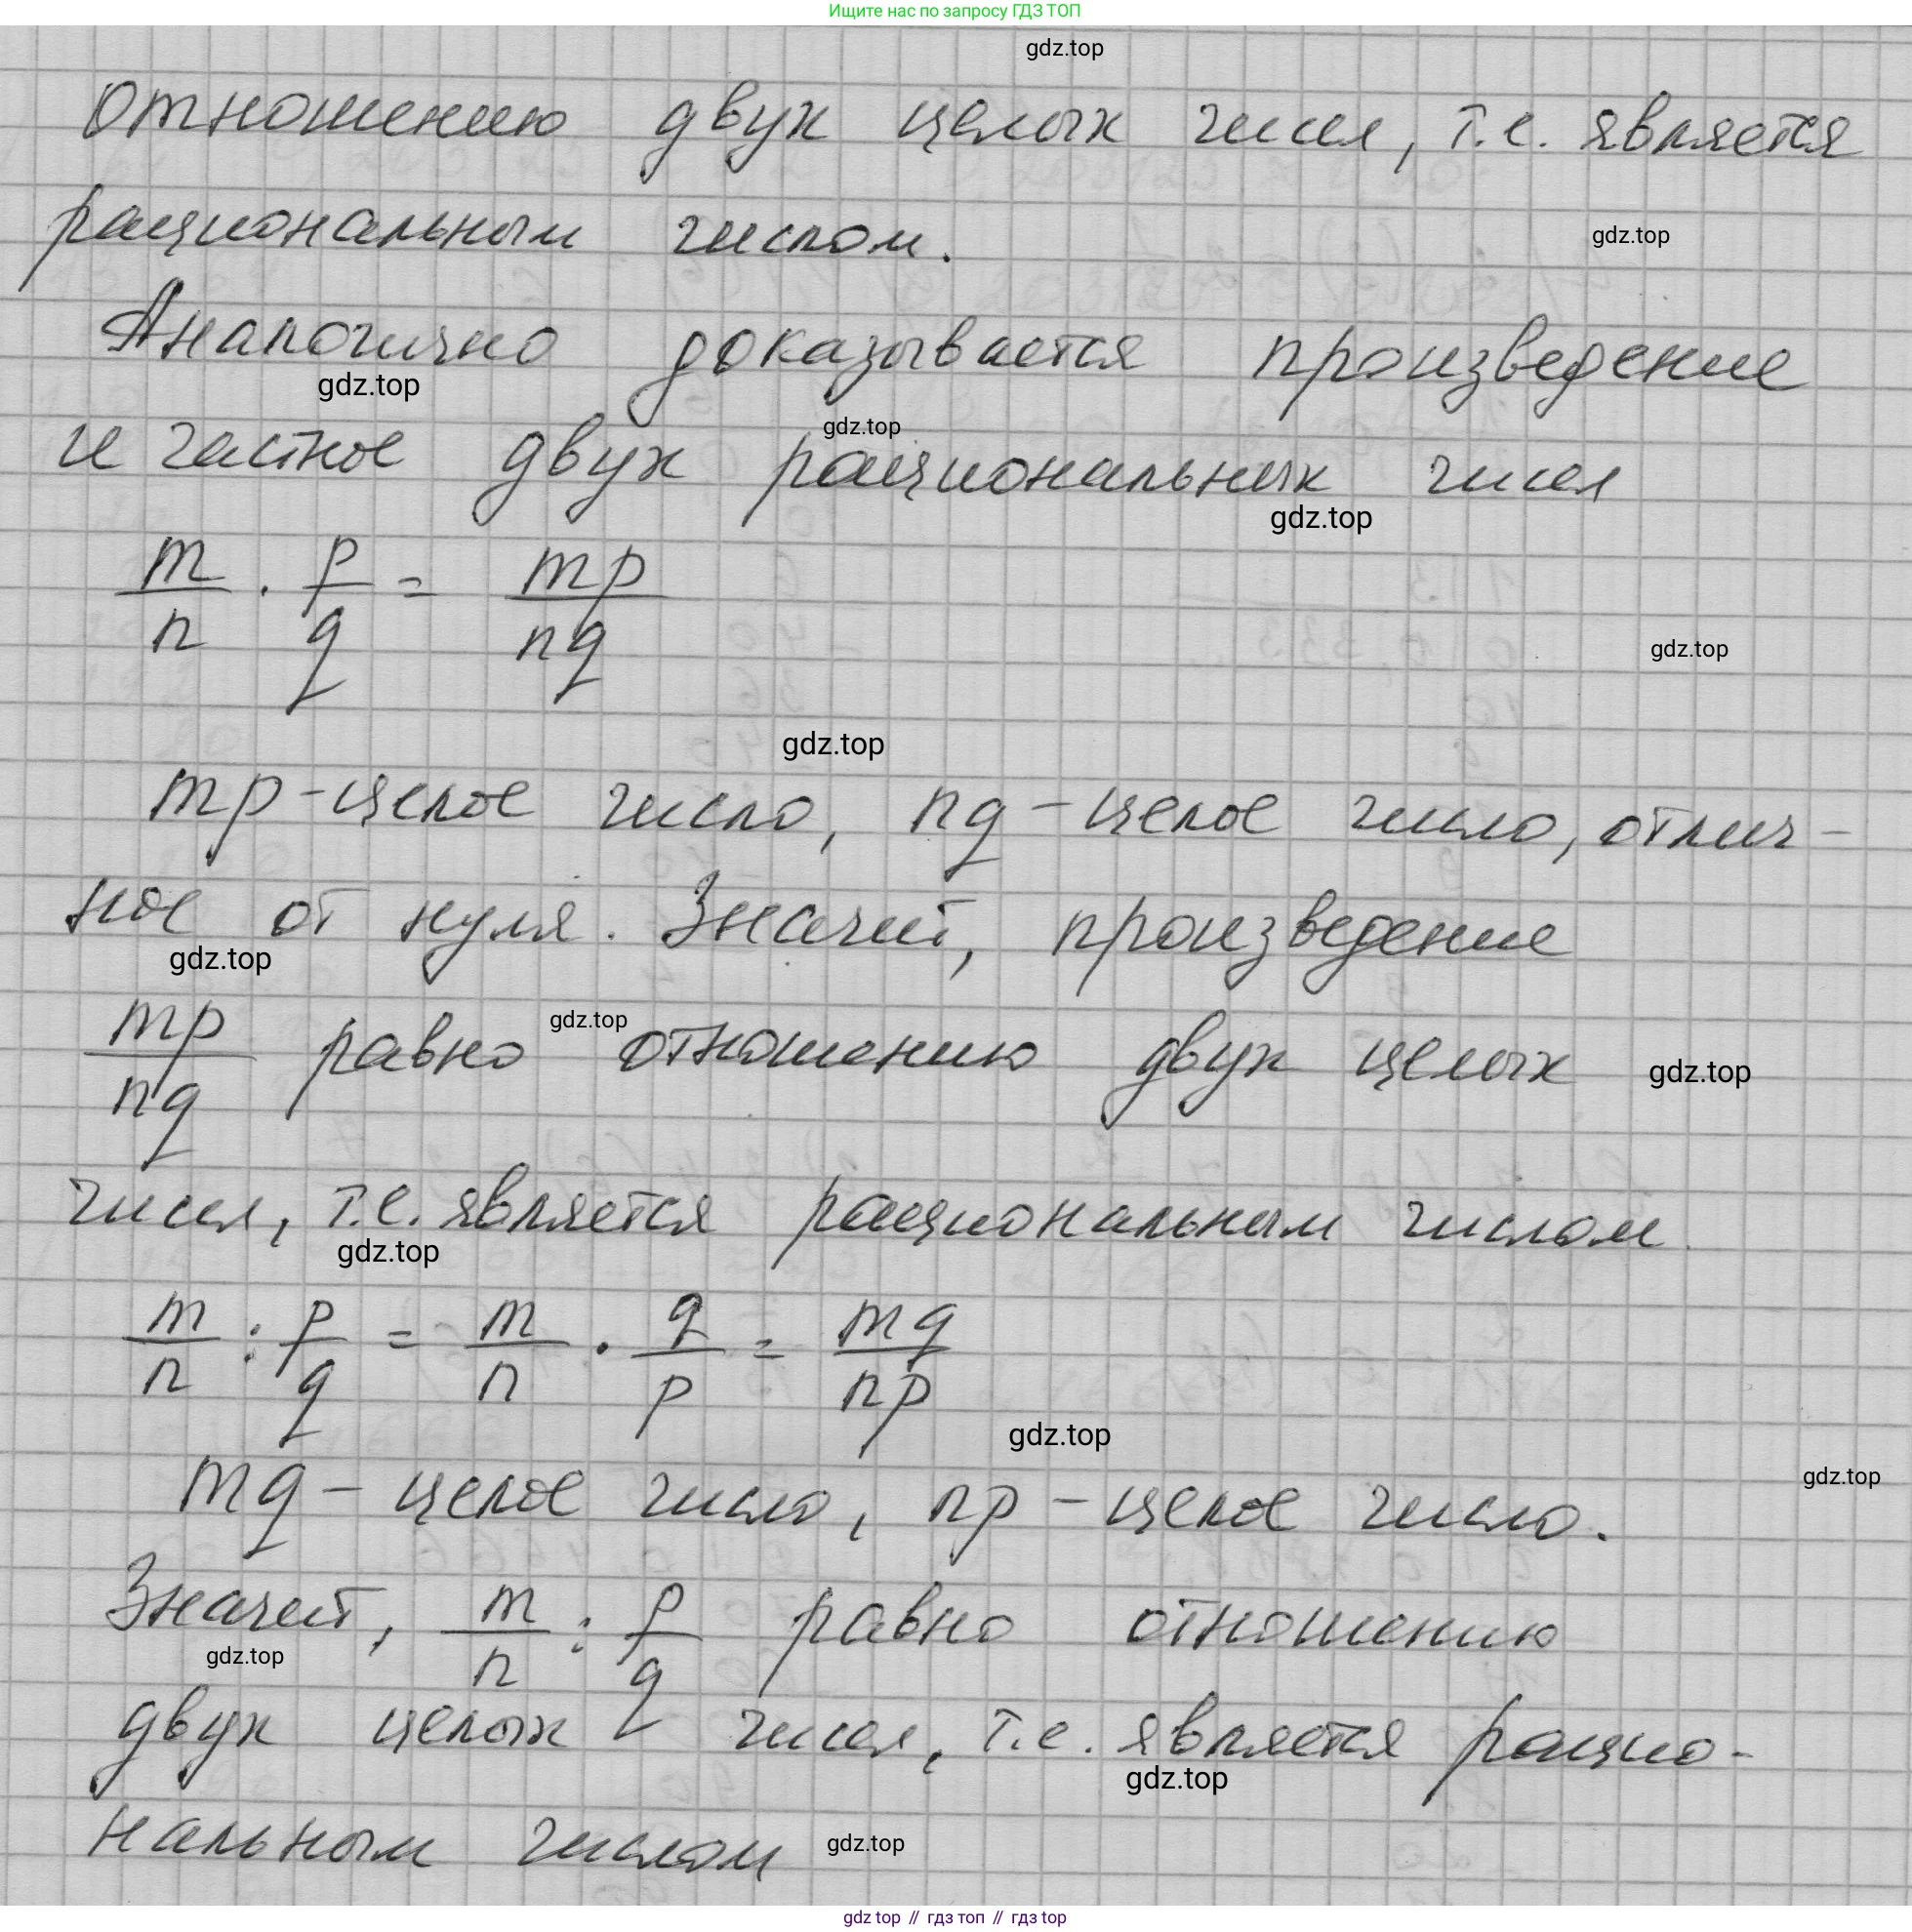 Ищите нас по запросу ГДЗ ТОП
gdz.top
отношению двух целых чисел, т.е. является
рациональным числом.
gdz.top
Аналогично доказывается произведение
gdz.top
gdz.top
и частное двух рациональных чисел
gdz.top
m/n · p/q = mp/nq
gdz.top
gdz.top
mp - целое число, nq - целое число, отлич-
ное от нуля. Значит, произведение
gdz.top
gdz.top
mp/nq равно отношению двух целых
gdz.top
чисел, т.е. является рациональным числом.
gdz.top
m/n : p/q = m/n · q/p = mq/np
gdz.top
gdz.top
mq - целое число, np - целое число.
Значит, m/n : p/q равно отношению
gdz.top
двух целых чисел, т.е. является рацио-
gdz.top
нальным числом
gdz.top
gdz top // гдз топ // гдз top